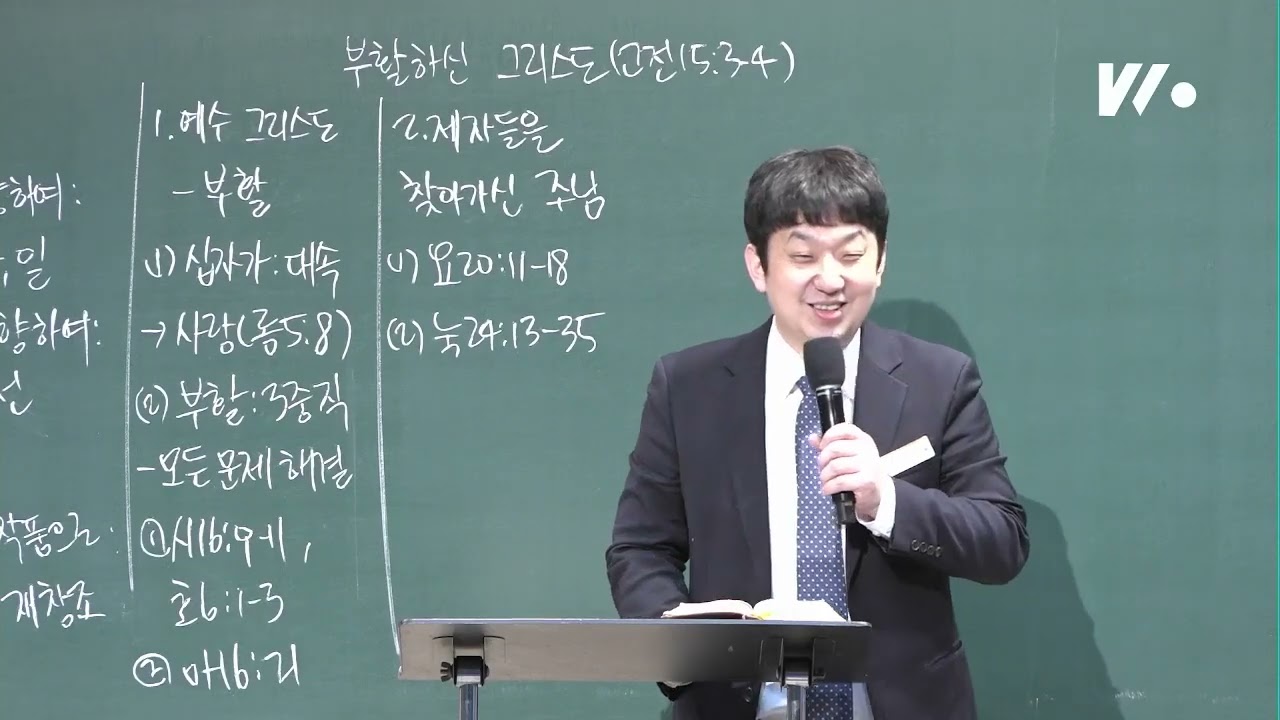 부활하신 그리스도(고전15:3-4)
하여:
일
향하여:
선
작품으로:
재창조
1. 예수 그리스도
- 부활
(1) 십자가: 대속
→ 사랑(롬5:8)
(2) 부활: 3중직
- 모든 문제 해결
① 시16:9-11,
호6:1-3
② 마16:21
2. 제자들을
찾아가신 주님
(1) 요20:11-18
(2) 눅24:13-35